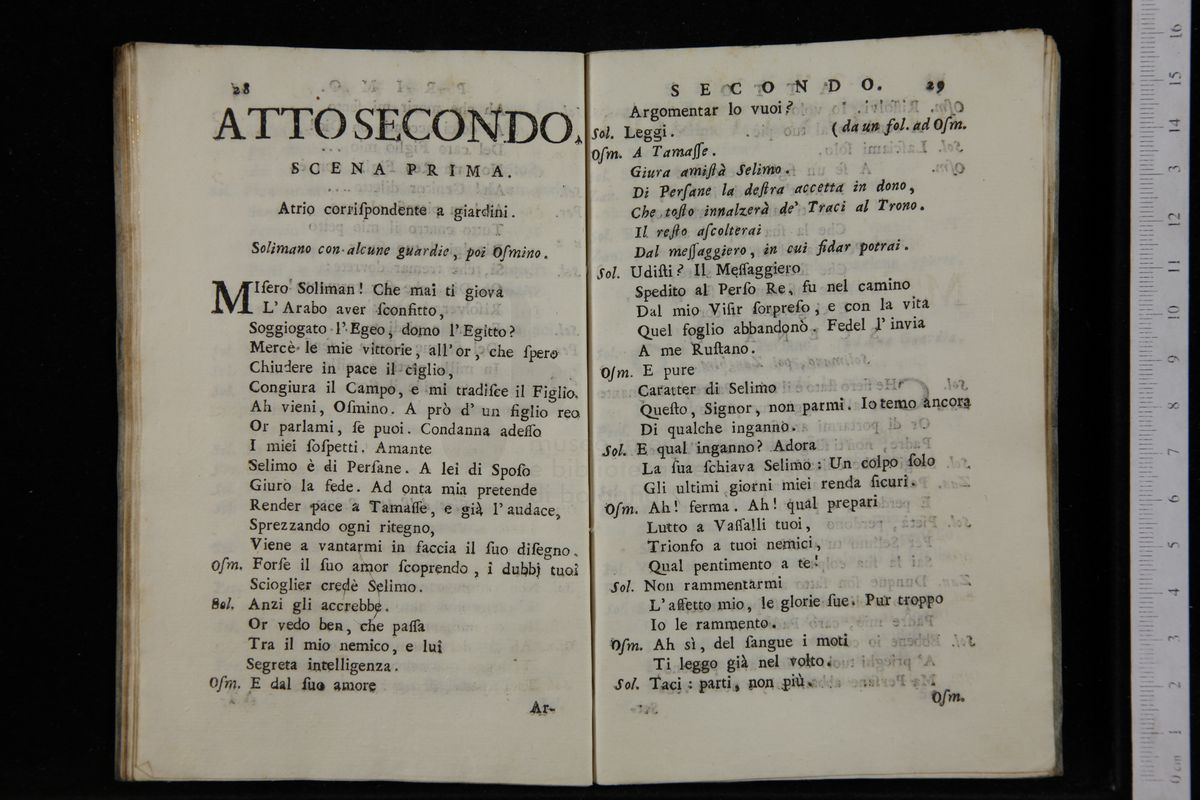 28
ATTO SECONDO.
SCENA PRIMA.
Atrio corriſpondente a giardini.
Solimano con alcune guardie, poi Oſmino.
MIſero Soliman! Che mai ti giova
L' Arabo aver ſconfitto,
Soggiogato l' Egeo, domo l' Egitto?
Mercè le mie vittorie, all' or, che ſpero
Chiudere in pace il ciglio,
Congiura il Campo, e mi tradiſce il Figlio.
Ah vieni, Oſmino. A prò d' un figlio reo
Or parlami, ſe puoi. Condanna adeſſo
I miei ſoſpetti. Amante
Selimo è di Perſane. A lei di Spoſo
Giurò la fede. Ad onta mia pretende
Render pace a Tamaſſe, e già l' audace,
Sprezzando ogni ritegno,
Viene a vantarmi in faccia il ſuo diſegno.
Oſm. Forſe il ſuo amor ſcoprendo, i dubbj tuoi
Scioglier credè Selimo.
Sol. Anzi gli accrebbe.
Or vedo ben, che paſſa
Tra il mio nemico, e lui
Segreta intelligenza.
Oſm. E dal ſuo amore
Ar-
SECONDO. 29
Argomentar lo vuoi?
Sol. Leggi. (da un fol. ad Oſm.
Oſm. A Tamaſſe.
Giura amiſtà Selimo.
Di Perſane la deſtra accetta in dono,
Che toſto innalzerà de' Traci al Trono.
Il reſto aſcolterai
Dal meſſaggiero, in cui fidar potrai.
Sol. Udiſti? Il Meſſaggiero
Spedito al Perſo Re, fu nel camino
Dal mio Viſir ſorpreſo, e con la vita
Quel foglio abbandonò. Fedel l' invia
A me Ruſtano.
Oſm. E pure
Caratter di Selimo
Queſto, Signor, non parmi. Io temo ancora
Di qualche inganno.
Sol. E qual inganno? Adora
La ſua ſchiava Selimo: Un colpo ſolo
Gli ultimi giorni miei renda ſicuri.
Oſm. Ah! ferma. Ah! qual prepari
Lutto a Vaſſalli tuoi,
Trionfo a tuoi nemici,
Qual pentimento a te!
Sol. Non rammentarmi
L' affetto mio, le glorie ſue. Pur troppo
Io le rammento.
Oſm. Ah sì, del ſangue i moti
Ti leggo già nel volto.
Sol. Taci: parti, non più.
Oſm.